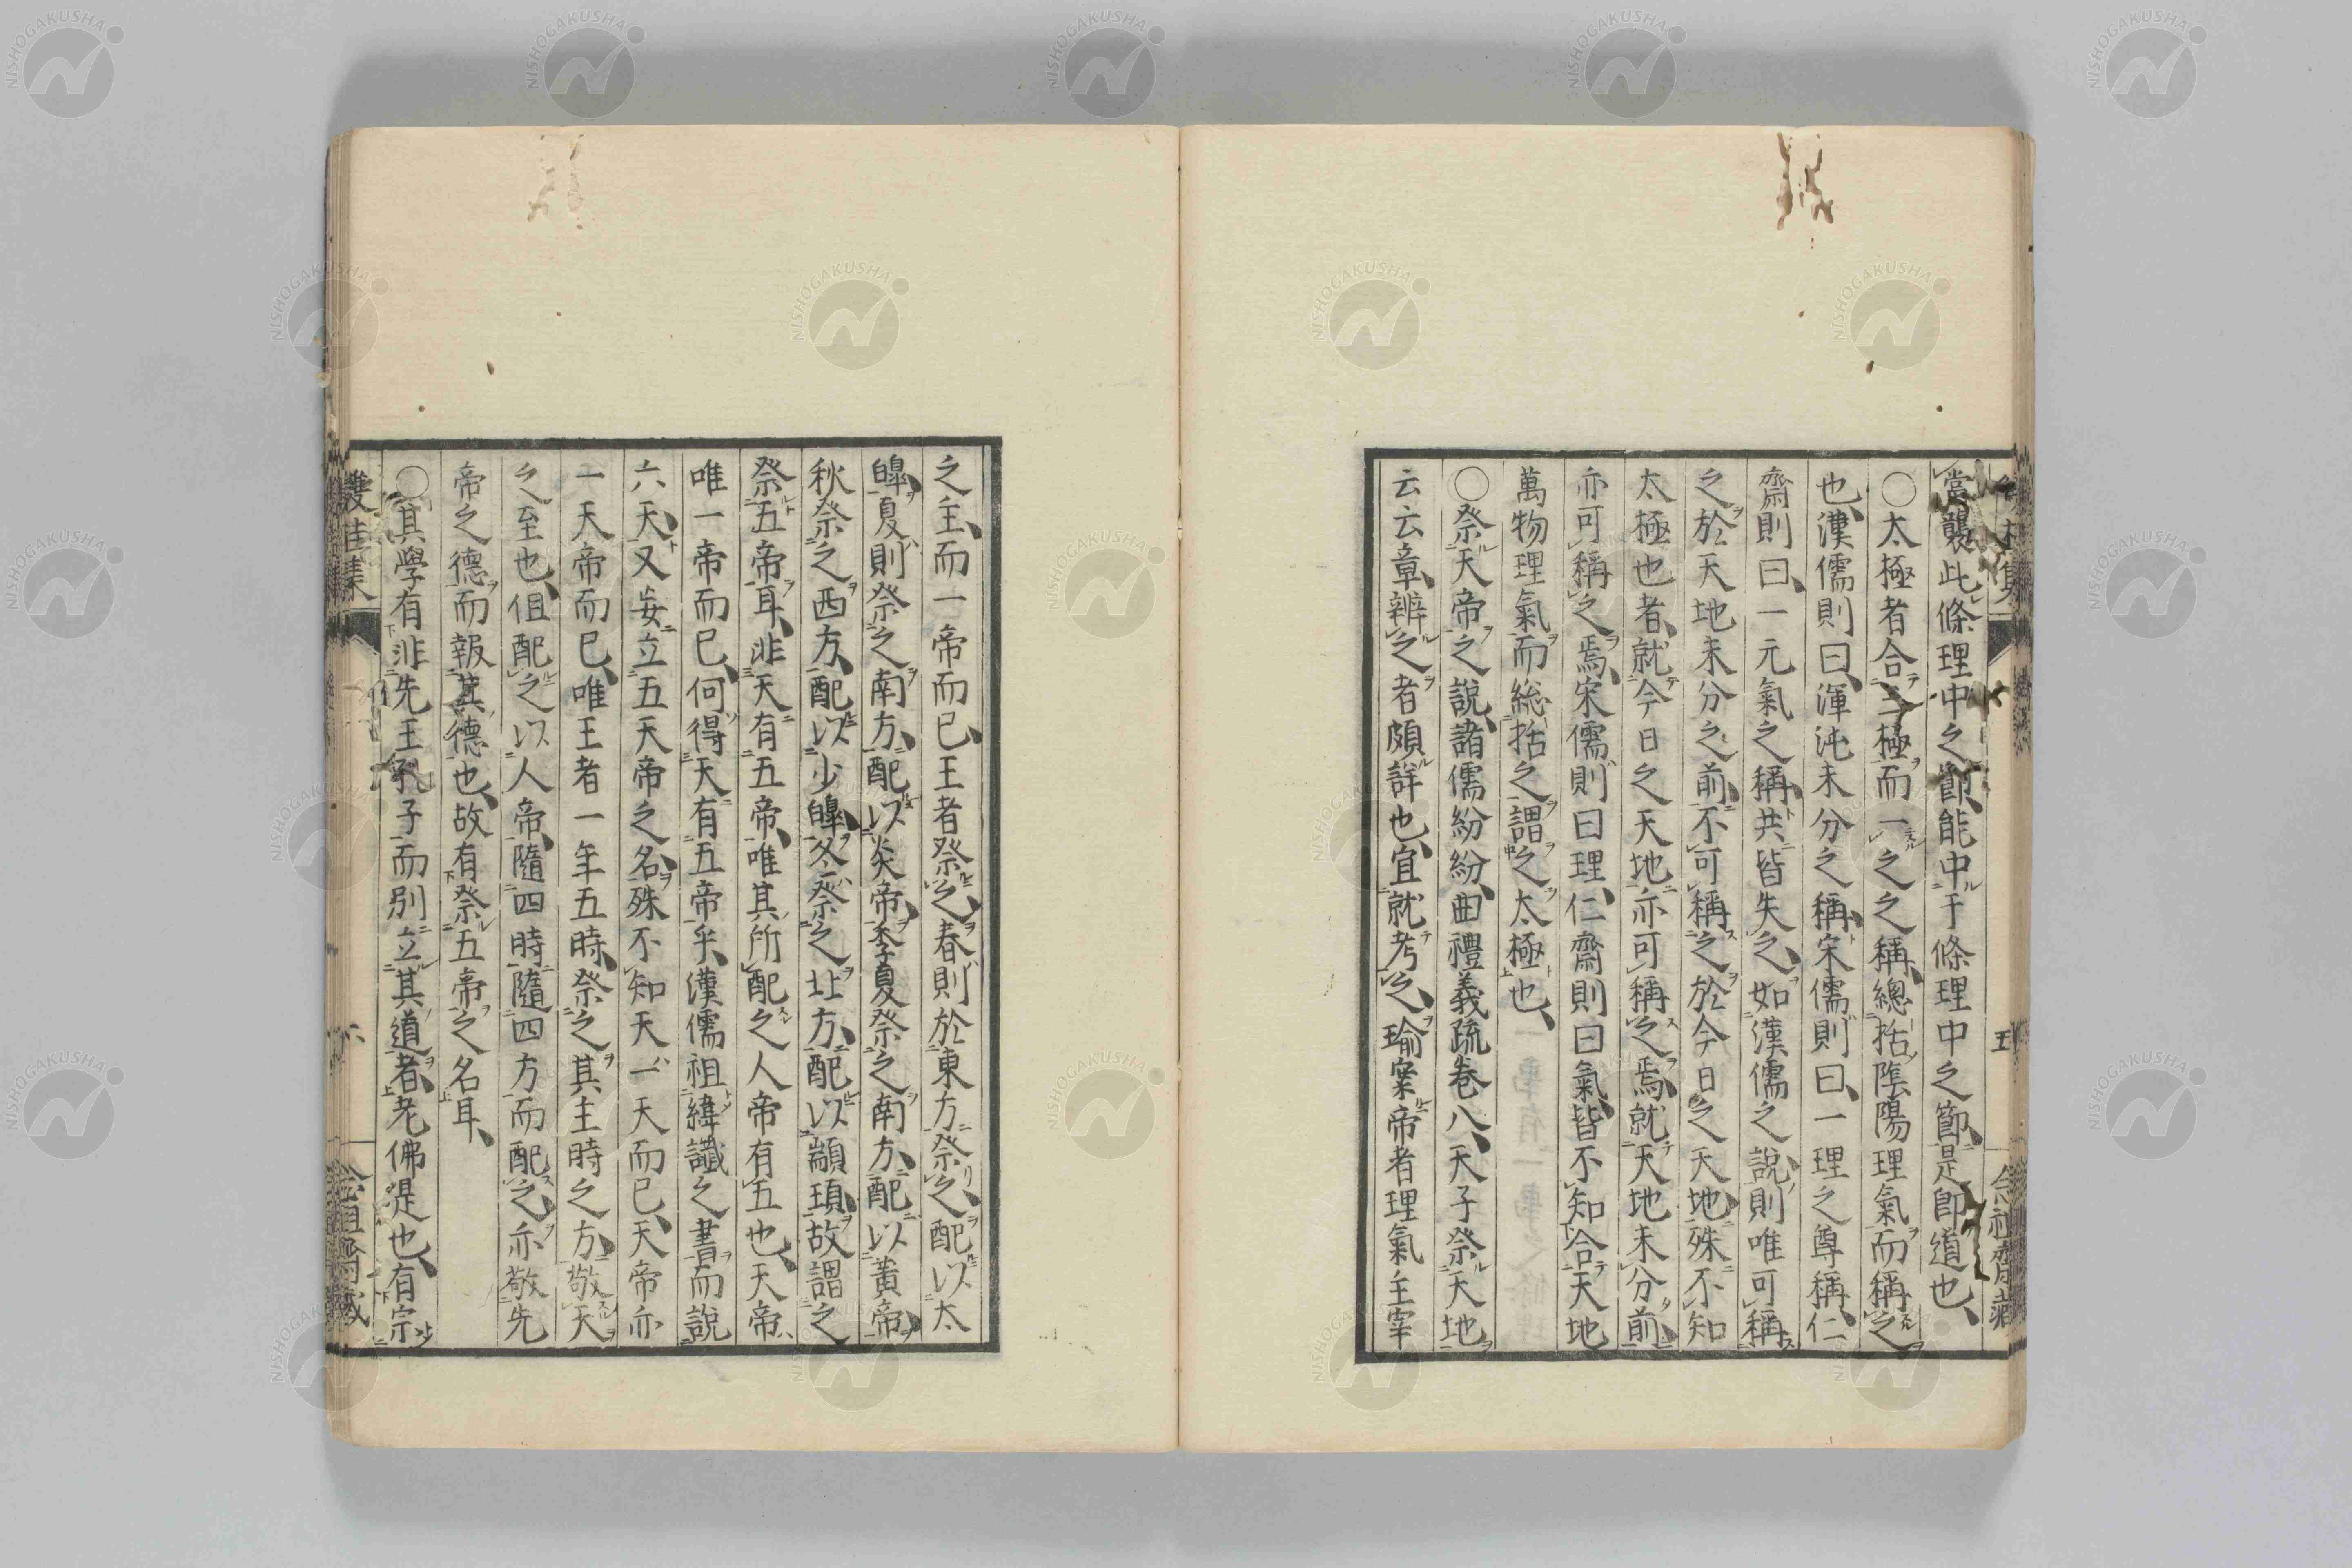 當襲此條理中之節、能中于條理中之節、是卽道也、
○太極者合三極而一之之稱、總括陰陽理氣而稱之
也、漢儒則曰、渾沌未分之稱、宋儒則曰、一理之尊稱、仁
齋則曰、一元氣之稱、共皆失之、如漢儒之說、則唯可稱
之於天地未分之前、不可稱之於今日之天地、殊不知
太極也者、就今日之天地、亦可稱之焉、就天地未分前、
亦可稱之焉、宋儒則曰理、仁齋則曰氣、皆不知合天地
萬物理氣而総括之謂之太極也、
○祭天帝之說、諸儒紛紛、曲禮義疏卷八、天子祭天地
云云章、辨之者頗詳也、宜就考之、瑜案帝者理氣主宰
五
之主、而一帝而已、王者祭之、春則於東方祭之、配以太
皥、夏則祭之南方、配以炎帝、季夏祭之南方、配以黃帝、
秋祭之西方、配以少皥、冬祭之北方、配以顓頊、故謂之
祭五帝耳、非天有五帝、唯其所配之人帝有五也、天帝
唯一帝而已、何得天有五帝乎、漢儒祖緯讖之書而說
六天、又妄立五天帝之名、殊不知天一天而已、天帝亦
一天帝而已、唯王者一年五時、祭之其主時之方、敬天
之至也、但配之以人帝、隨四時隨四方而配之、亦敬先
帝之德而報其德也、故有祭五帝之名耳、
○其學有非先王孔子而別立其道者、老佛是也、有宗
雙桂集